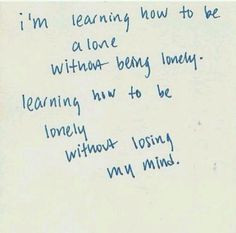 i'm learning how to be
alone
without being lonely.
learning how to be
lonely
without losing
my mind.